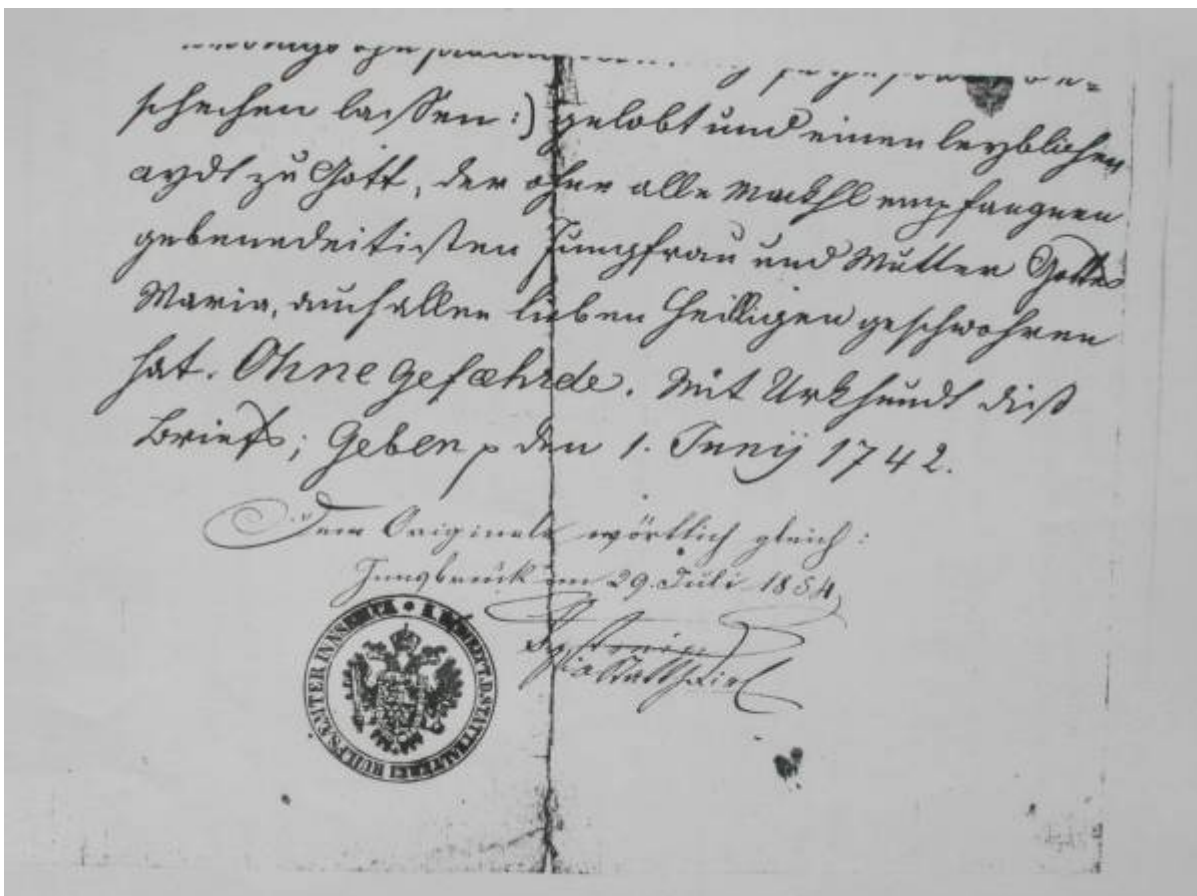 schechen lassen:) gelobt und einen leyblichen
aydt zu Gott, der ohne alle Mackhl empfangnen
gebenedeitisten Jungfrau und Mutter Gottes
Maria, auch allen lieben Heilligen geschwohren
hat. Ohne gefæhrde. Mit Urkhundt diß
Briefs; Geben den 1. Junij 1742.
Dem Originale wörtlich gleich:
Innsbruck am 29. Juli 1854